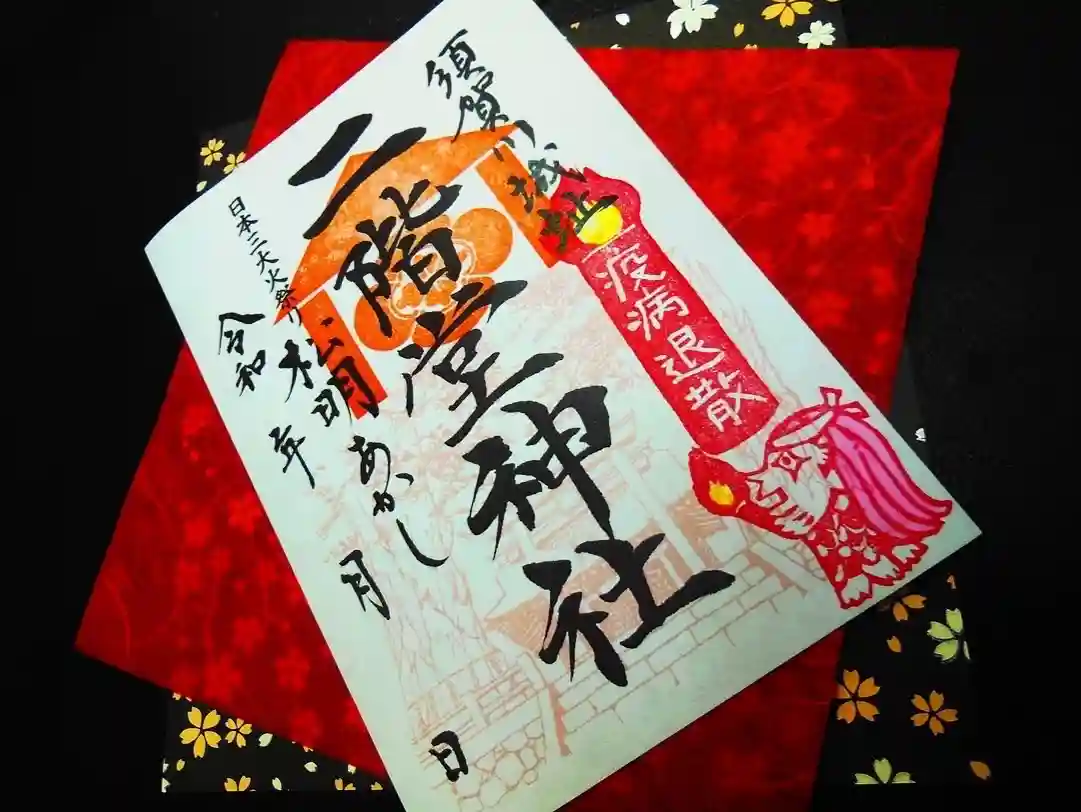 須賀川城址
疫病退散
二階堂神社
日本三大火祭り
松明あかし
令和 年 月 日